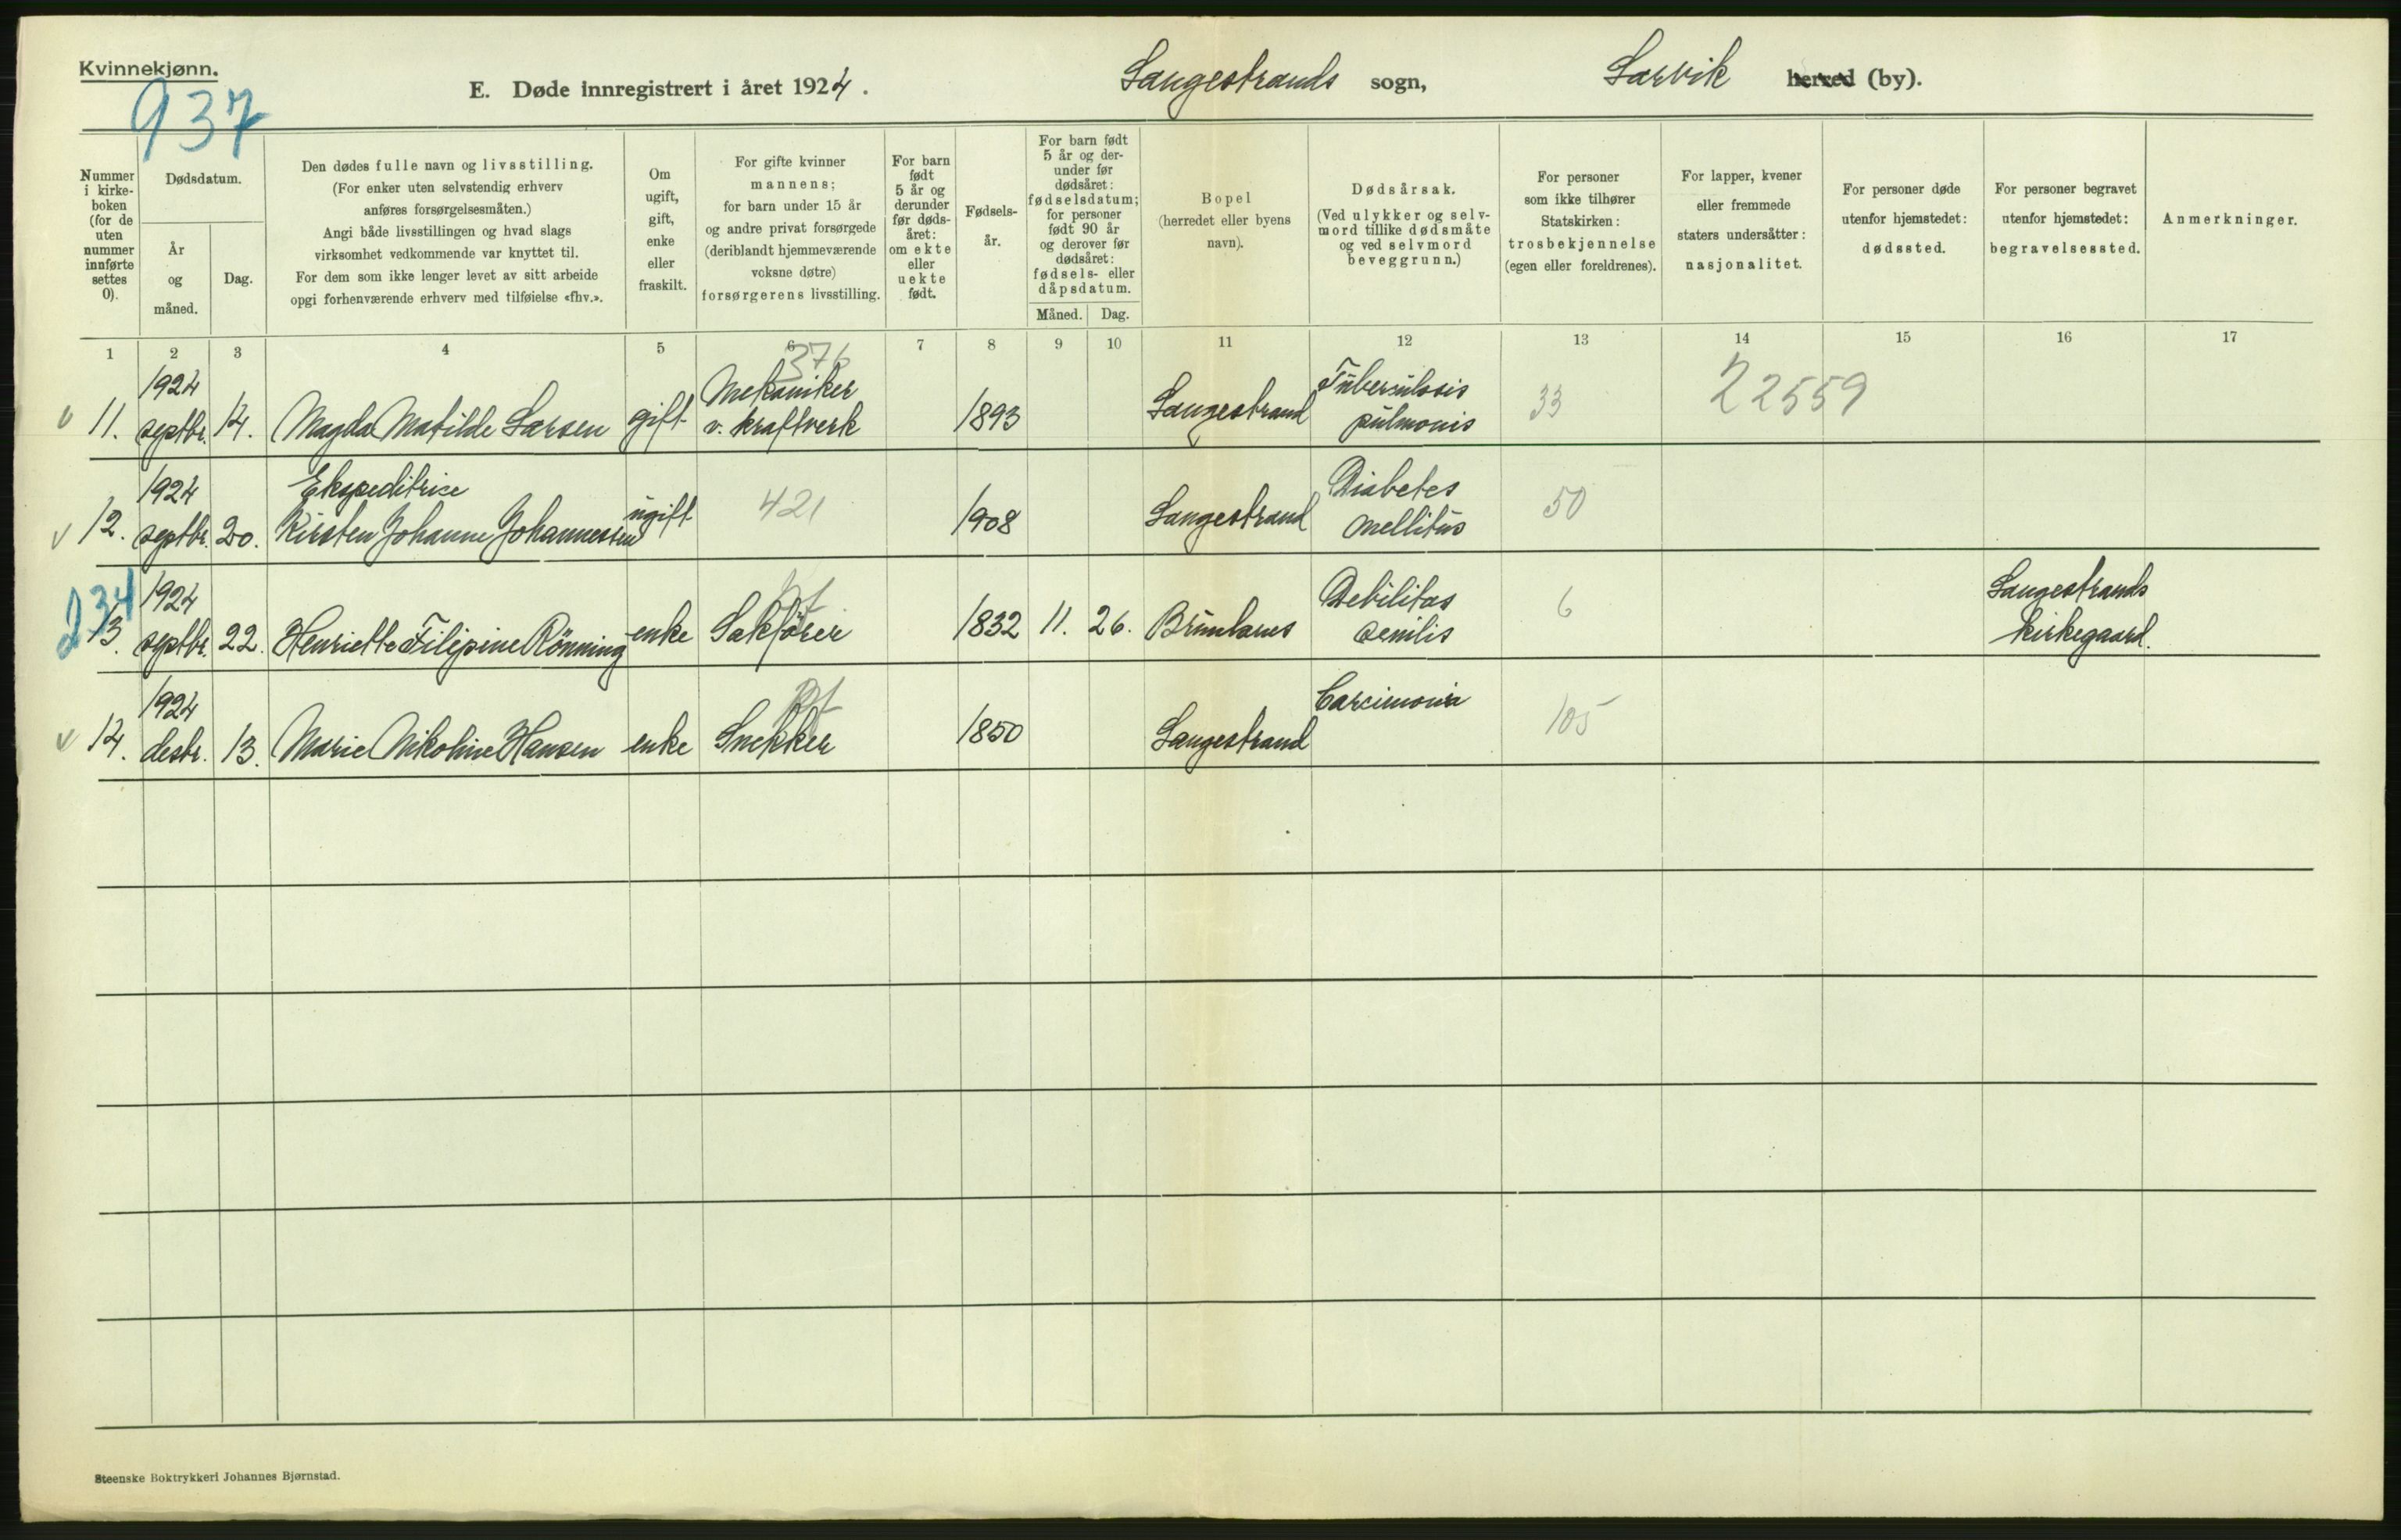 Kvinnekjønn.
937
E. Døde innregistrert i året 1924.
Langestrands sogn,
Larvik herred (by).
Nummer
i kirke-
boken
(for de
uten
nummer
innførte
settes
0).
Dødsdatum.
År
og
måned.
Dag.
Den dødes fulle navn og livsstilling.
(For enker uten selvstendig erhverv
anføres forsørgelsesmåten.)
Angi både livsstillingen og hvad slags
virksomhet vedkommende var knyttet til.
For dem som ikke lenger levet av sitt arbeide
opgi forhenværende erhverv med tilføielse «fhv.».
Om
ugift,
gift,
enke
eller
fraskilt.
For gifte kvinner
mannens;
for barn under 15 år
og andre privat forsørgede
(deriblandt hjemmeværende
voksne døtre)
forsørgerens livsstilling.
For barn
født
5 år og
derunder
før døds-
året:
om ekte
eller
uekte
født.
Fødsels-
år.
For barn født
5 år og der-
under før
dødsåret:
fødselsdatum;
for personer
født 90 år
og derover før
dødsåret:
fødsels- eller
dåpsdatum.
Måned. Dag.
Bopel
(herredet eller byens
navn).
Dødsårsak.
(Ved ulykker og selv-
mord tillike dødsmåte
og ved selvmord
beveggrunn.)
For personer
som ikke tilhører
Statskirken:
trosbekjennelse
(egen eller foreldrenes).
For lapper, kvener
eller fremmede
staters undersåtter:
nasjonalitet.
For personer døde
utenfor hjemstedet:
dødssted.
For personer begravet
utenfor hjemstedet:
begravelsessted.
Anmerkninger.
1 2 3 4 5 6 7 8 9 10 11 12 13 14 15 16 17
376
1924 Mekaniker Tuberculosis
v 11. septbr. 14. Magda Matilde Larsen gift v. kraftverk 1893 Langestrand pulmonis 33 22559
1924 Ekspeditrice Diabetes
v 12. septbr. 20. Kirsten Johanne Johannessen ugift 421 1908 Langestrand mellitus 50
234 1924 Debilitas Langestrands
13. septbr. 22. Henriette Filipine Rönning enke Sakfører 1832 11. 26. Brunlanes senilis 6 kirkegaard.
1924 Carcimonia
v 14. desbr. 13. Marie Nikoline Hansen enke Snekker 1850 Langestrand 105
Steenske Boktrykkeri Johannes Bjørnstad.